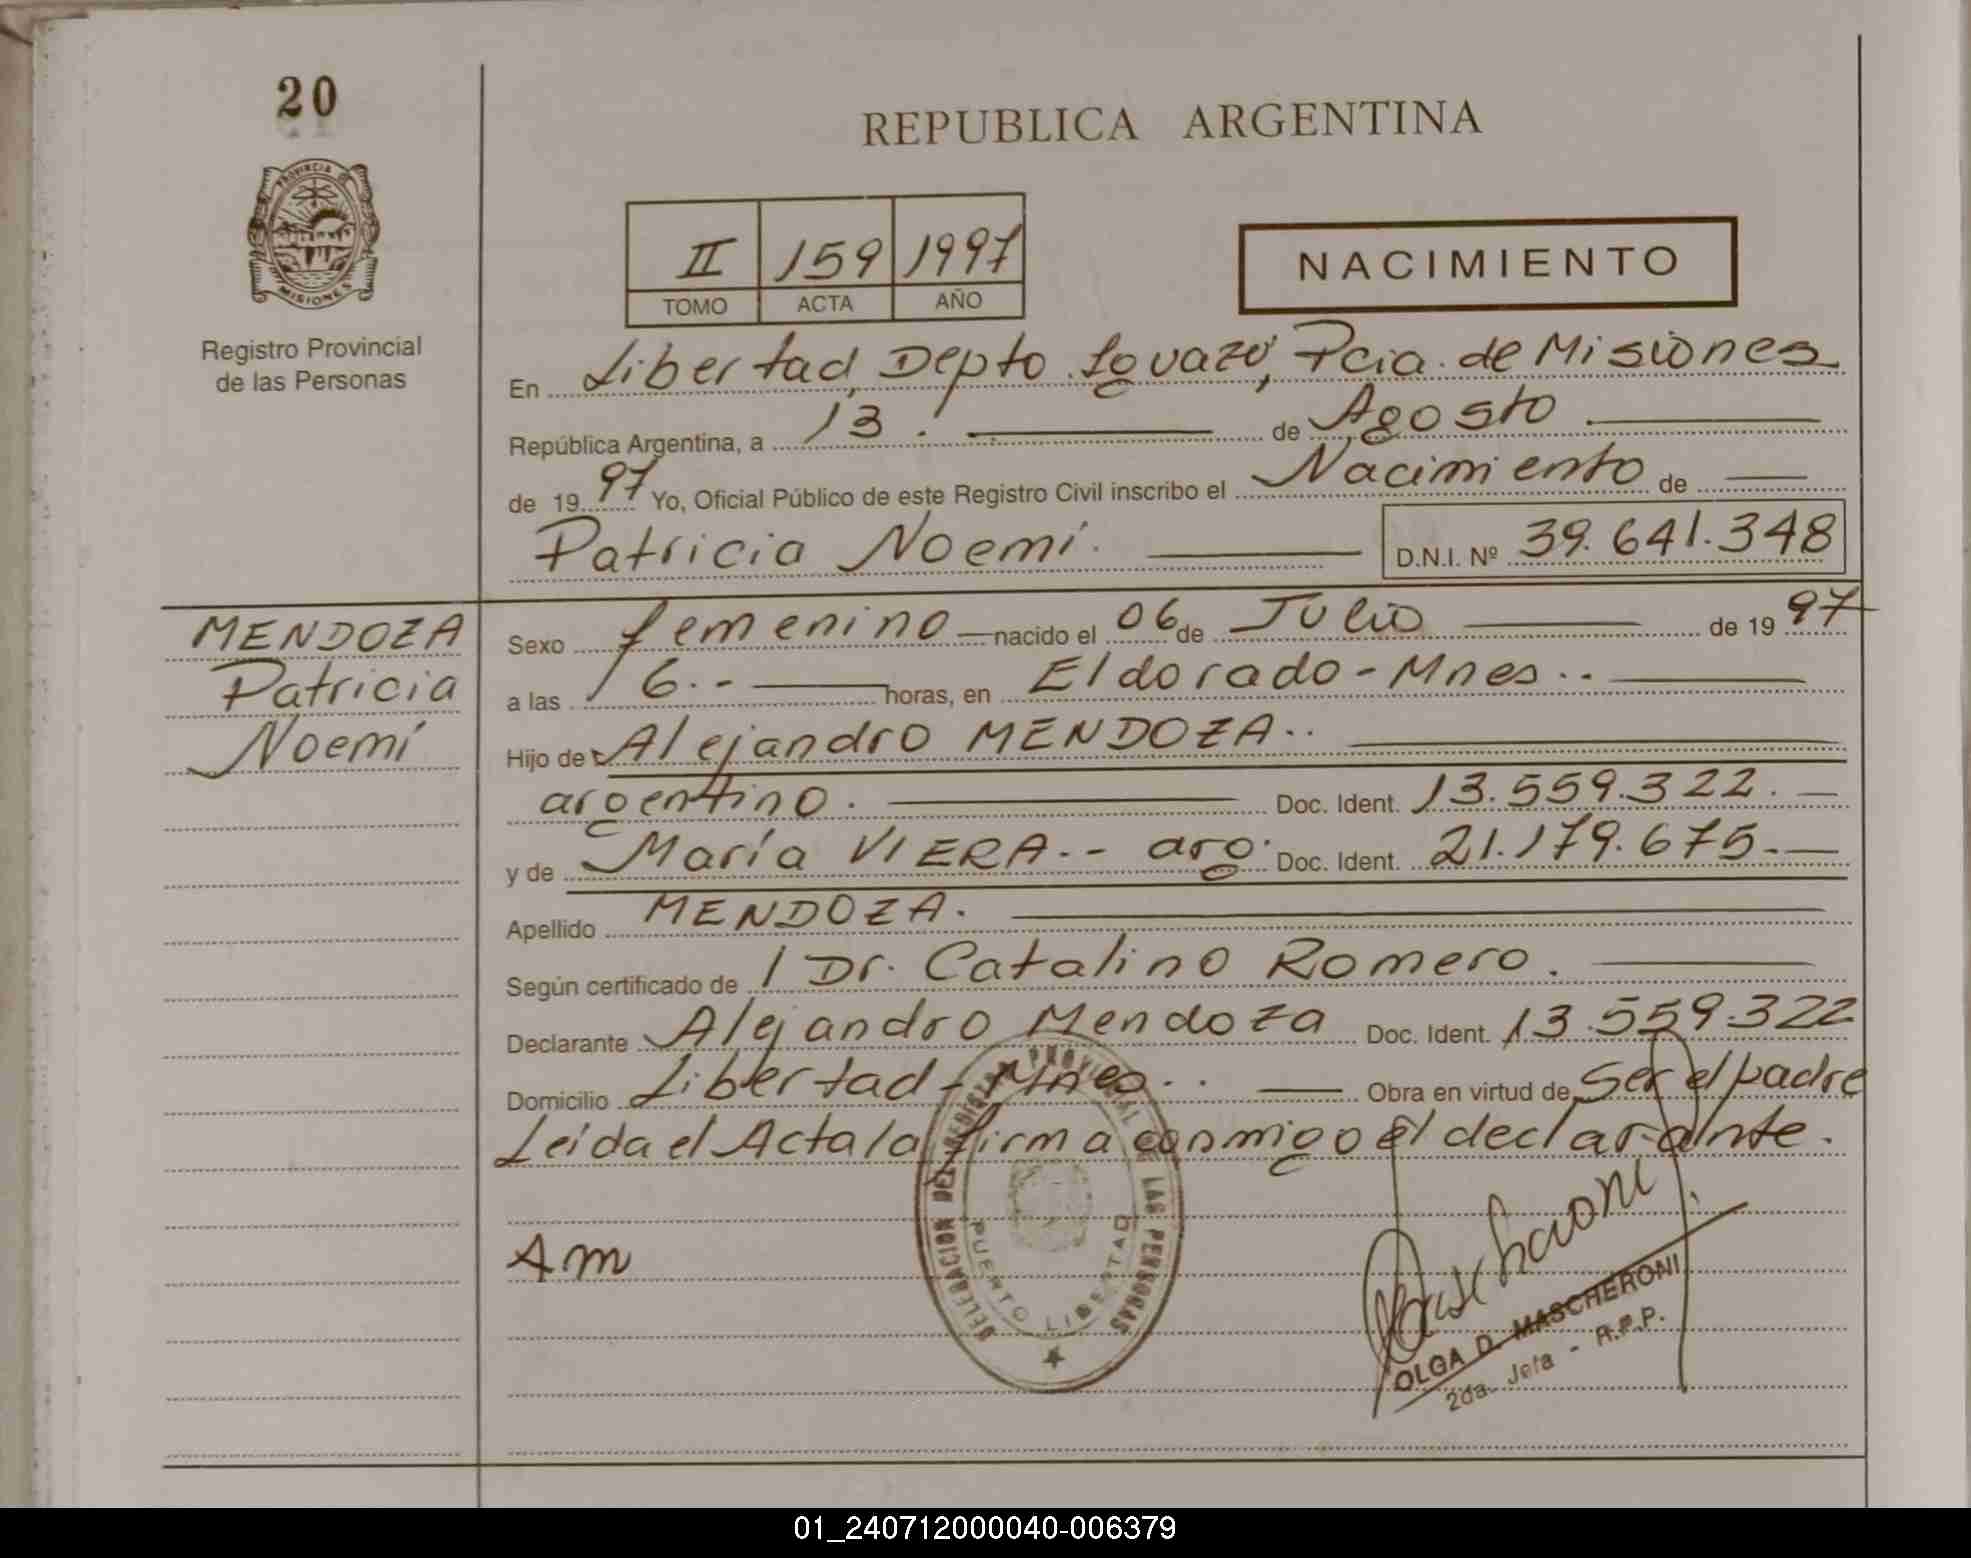 20
REPUBLICA ARGENTINA
PROVINCIA DE
MISIONES
Registro Provincial
de las Personas
II 159 1997
TOMO ACTA AÑO
NACIMIENTO
En Libertad, Depto Iguazú, Pcia. de Misiones
República Argentina, a 13. de Agosto
de 1997 Yo, Oficial Público de este Registro Civil inscribo el Nacimiento de
Patricia Noemí. D.N.I. Nº 39.641.348
MENDOZA
Patricia
Noemí
Sexo femenino nacido el 06 de Julio de 1997
a las 16.- horas, en Eldorado - Mnes..
Hijo de Alejandro MENDOZA..
argentino. Doc. Ident. 13.559.322.
y de María VIERA.- arg. Doc. Ident. 21.179.675.
Apellido MENDOZA.
Según certificado de / Dr. Catalino Romero.
Declarante Alejandro Mendoza Doc. Ident. 13.559.322
Domicilio Libertad - Mnes.. Obra en virtud de Ser el padre
Leída el Acta la firma conmigo el declarante.
Am
DELEGACION DEL REGISTRO PROVINCIAL DE LAS PERSONAS
PUERTO LIBERTAD
Mascheroni
OLGA D. MASCHERONI
2da. Jefa - R.P.P.
01_240712000040-006379